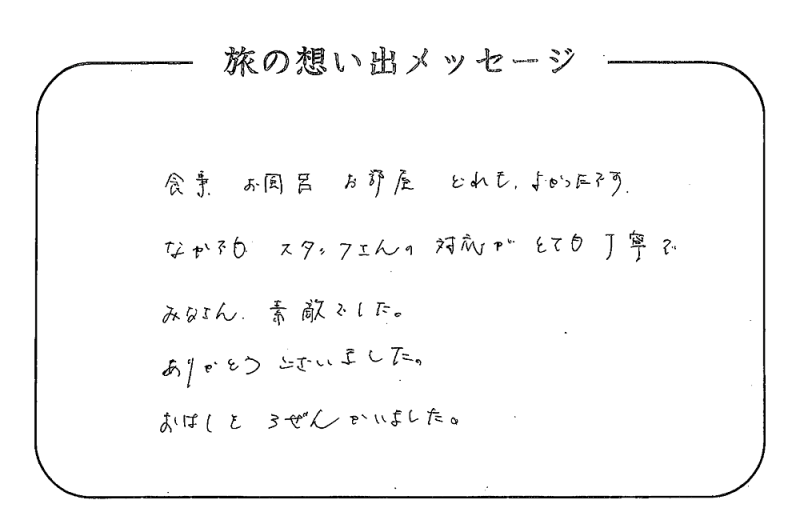 旅の想い出メッセージ
食事 お風呂 お部屋 どれも、よかったです。
なかでも スタッフさんの 対応が とても 丁寧で
みなさん、素敵でした。
ありがとう ございました。
おはしと ぜん かいました。